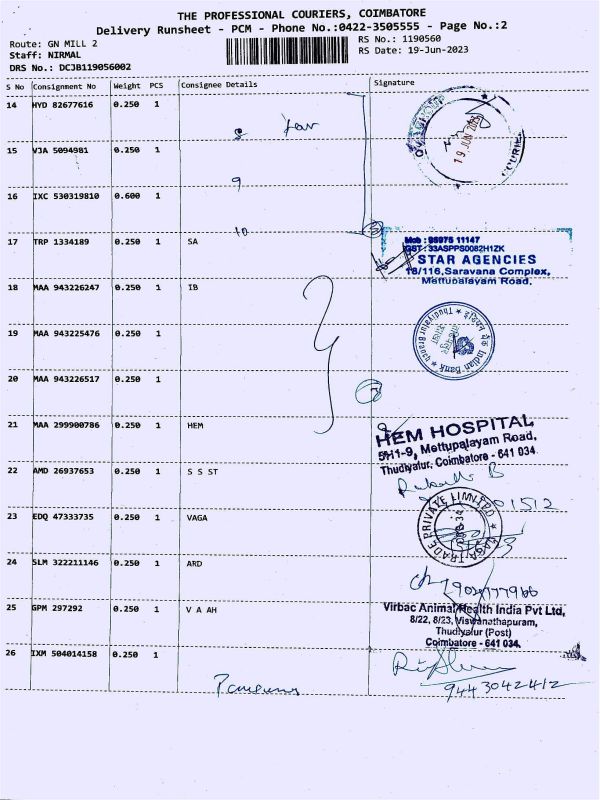 THE PROFESSIONAL COURIERS, COIMBATORE
Delivery Runsheet - PCM - Phone No.:0422-3505555 - Page No.:2
Route: GN MILL 2
RS No.: 1190560
Staff: NIRMAL
RS Date: 19-Jun-2023
DRS No.: DCJB119056002
S No Consignment No Weight PCS Consignee Details Signature
14 HYD 82677616 0.250 1
19 JUN 2023
15 VJA 5094981 0.250 1
9
16 IXC 530319810 0.600 1
10
17 TRP 1334189 0.250 1 SA
Mob : 95975 11147
GST : 33ASPPS0082H1ZK
STAR AGENCIES
18/116,Saravana Complex,
Mettupalayam Road.
18 MAA 943226247 0.250 1 IB
Indian Bank
Thudiyalur Branch
19 MAA 943225476 0.250 1
20 MAA 943226517 0.250 1
21 MAA 299900786 0.250 1 HEM
HEM HOSPITAL
5H1-9, Mettupalayam Road,
Thudiyalur, Coimbatore - 641 034
22 AMD 26937653 0.250 1 S S ST
23 EDQ 47333735 0.250 1 VAGA
VAGA TRADE PRIVATE LIMITED
24 SLM 322211146 0.250 1 ARD
25 GPM 297292 0.250 1 V A AH
Virbac Animal Health India Pvt Ltd,
8/22, 8/23, Viswanathapuram,
Thudiyalur (Post)
Coimbatore - 641 034.
26 IXM 504014158 0.250 1
9443042412